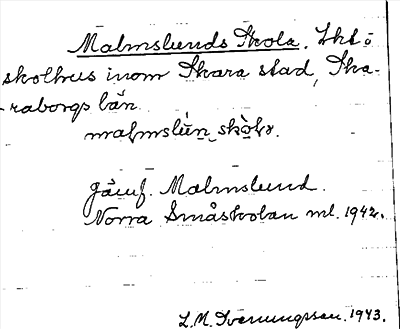 Malmslunds Skola. Lht o
skolhus inom Skara stad, Ska-
raborgs län.
malmslun skola.
Jämf. Malmslund.
Norra Småskolan ml. 1942.
L.M. Svenungsson. 1943.